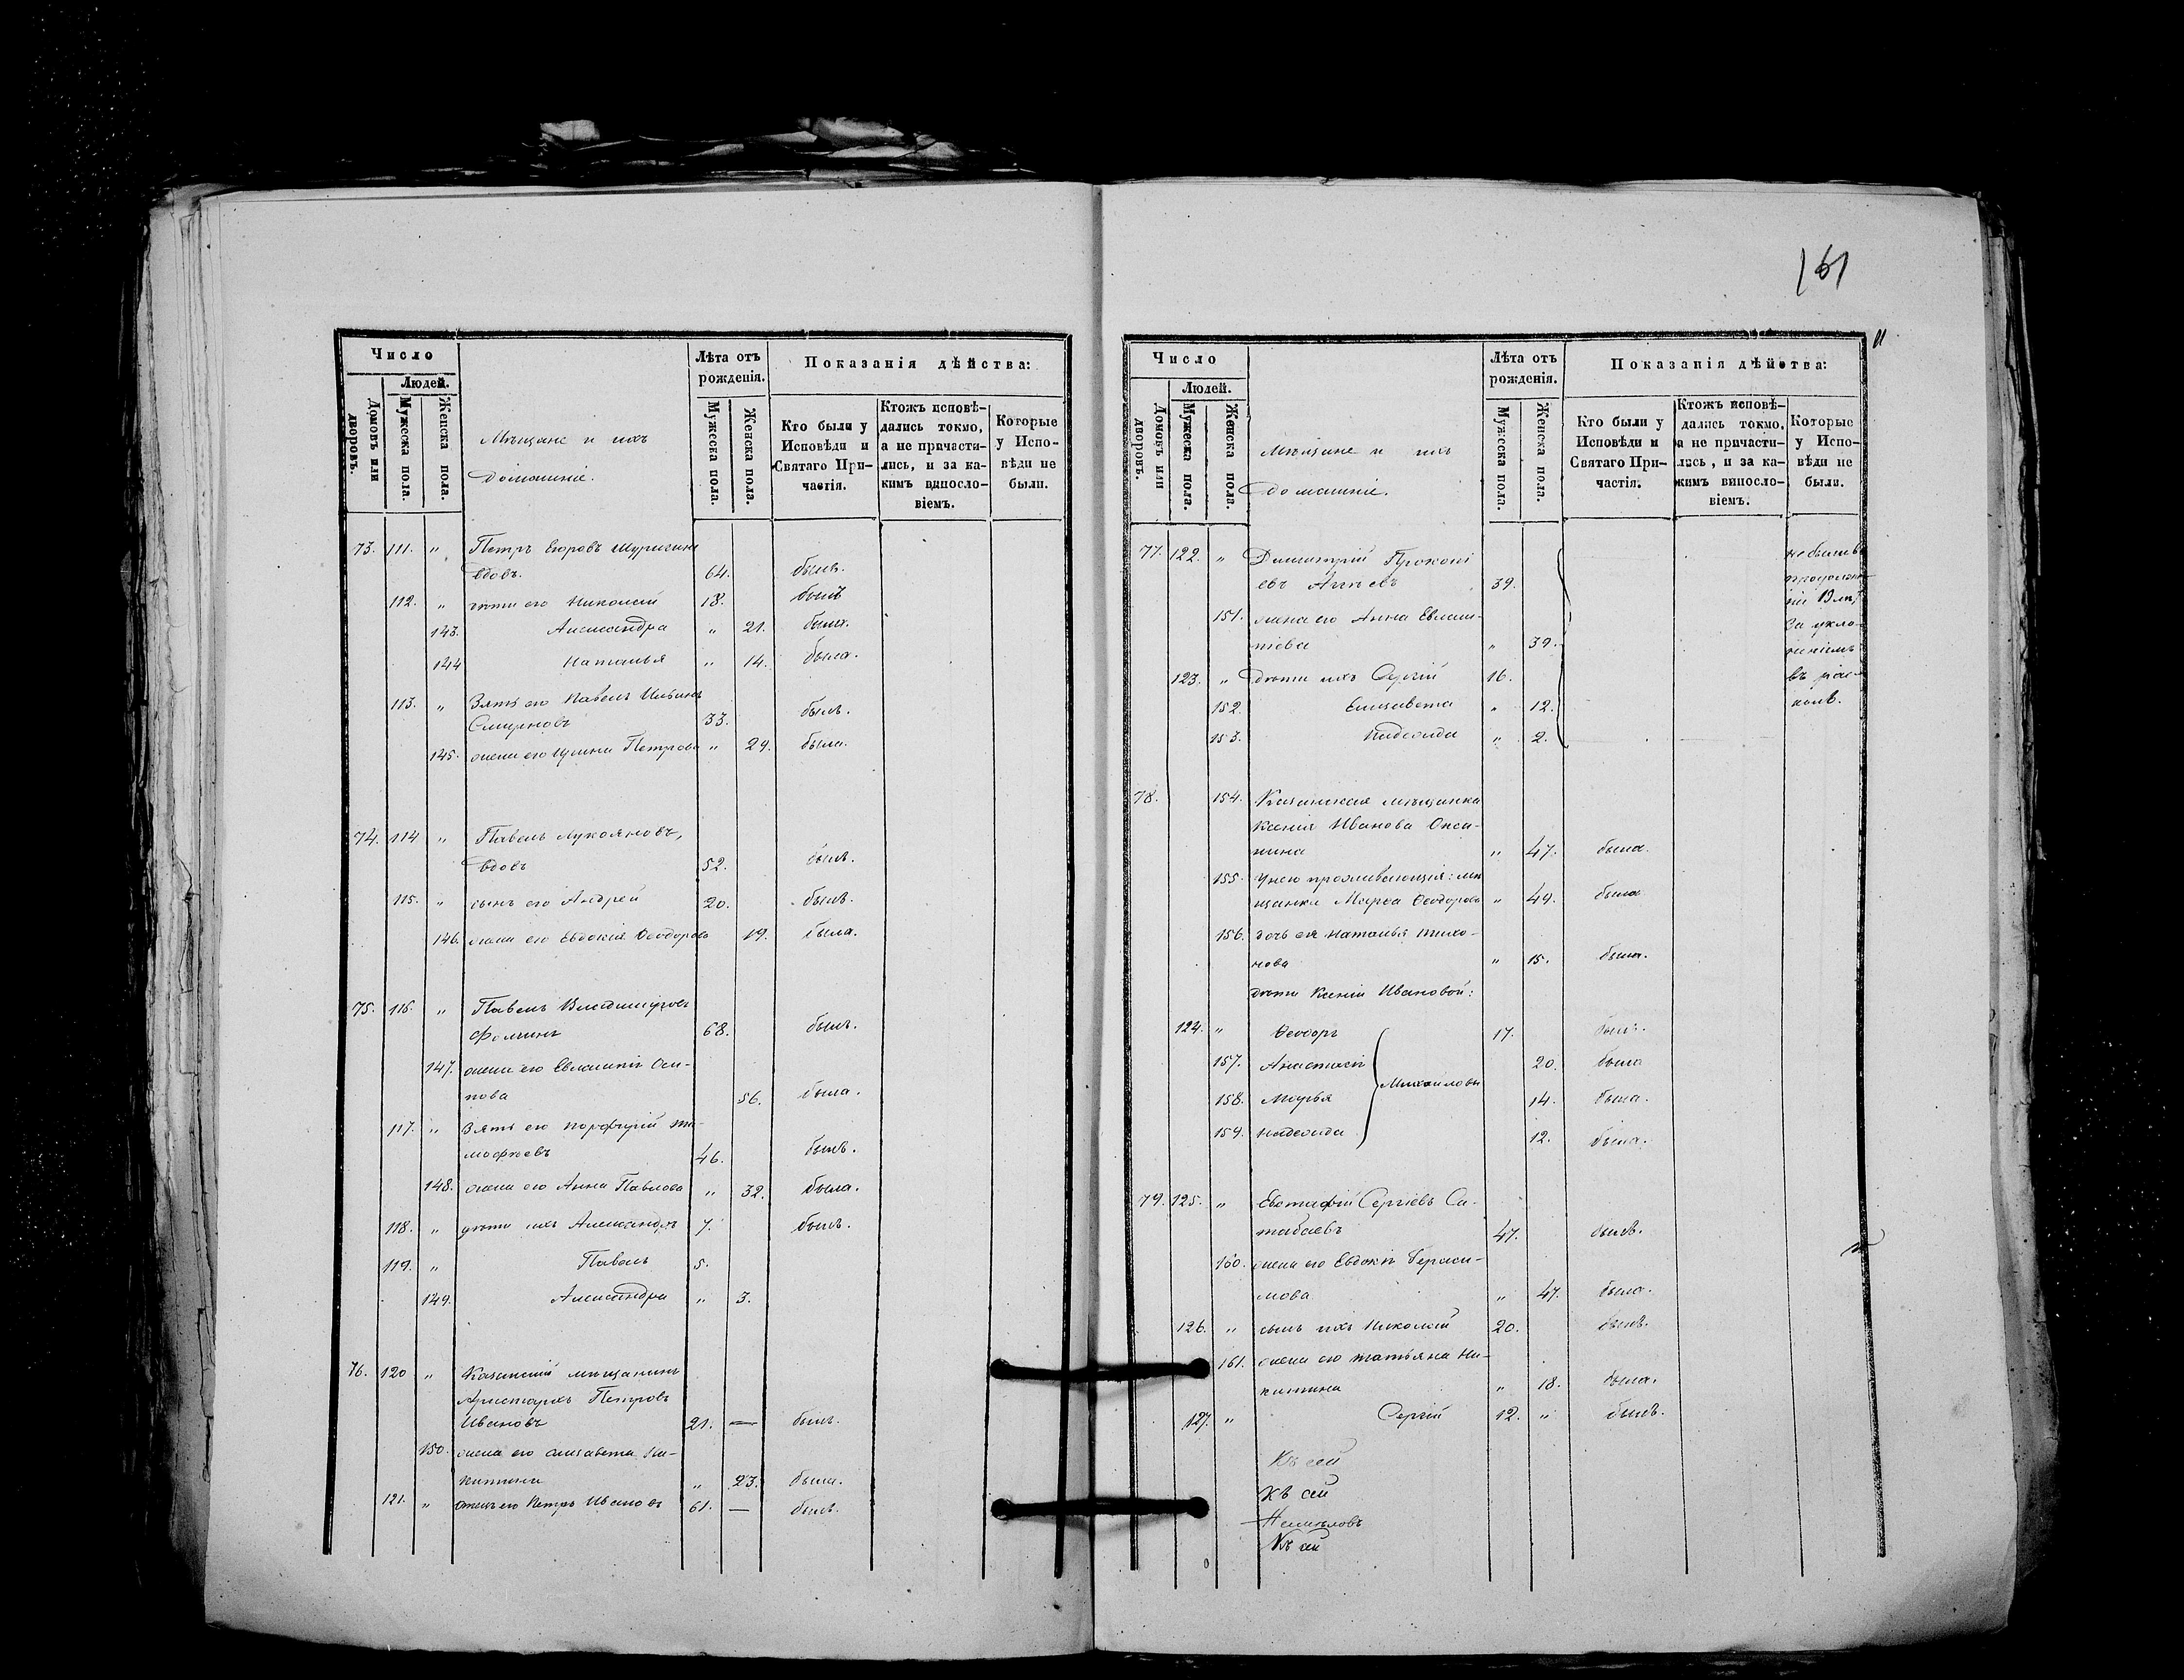 161
Число
Людей.
Домовъ или дворовъ.
Мужеска пола.
Женска пола.
Мѣщане и ихъ
домашніе.
Лѣта отъ рожденія.
Мужеска пола.
Женска пола.
Показанія дѣйства:
Кто были у Исповѣди и Святаго Причастія.
Ктожъ исповѣдались токмо, а не причастились, и за какимъ винословіемъ.
Которые у Исповѣди не были.
73. 111. " Петръ Егоровъ
вдовъ. 64. былъ.
112. " дѣти его Николай 18. былъ
143. Александра " 21. была.
144 Наталья " 14. была.
113. " Зять его Павелъ Ильинъ
Смирновъ 33. былъ.
145. жена его Ирина Петрова " 29. была.
74. 114 " Павелъ Лукояновъ,
вдовъ 52. былъ.
115. " сынъ его Андрей 20. былъ.
146. жена его Евдокія Ѳеодорова 19. была.
75. 116. " Павелъ Владиміровъ
Фоминъ 68. былъ.
147. жена его Евлампія Оси-
пова 56. была.
117. " Зять его Порфирій Ти-
мофѣевъ 46. былъ.
148. жена его Анна Павлова " 32. была.
118. " дѣти ихъ Александръ 7. былъ.
119. " Павелъ 5.
149. Александра " 3.
76. 120 " Казанскій мѣщанинъ
Аристархъ Петровъ
Ивановъ 21. — былъ.
150. жена его Елизавета Ни-
китина " 23. была.
121. " отецъ его Петръ Ивановъ 61. — былъ.
Число
Людей.
Домовъ или дворовъ.
Мужеска пола.
Женска пола.
Мѣщане и ихъ
домашніе.
Лѣта отъ рожденія.
Мужеска пола.
Женска пола.
Показанія дѣйства:
Кто были у Исповѣди и Святаго Причастія.
Ктожъ исповѣдались токмо, а не причастились, и за какимъ винословіемъ.
Которые у Исповѣди не были.
77. 122. " Димитрій Прокопі
евъ 39.
151. жена его Анна Евламп-
піева " 39.
123. " дѣти ихъ Сергій 16.
152. Елизавета " 12.
153. Надежда " 2.
не были въ
продолже-
ніи
За укло-
неніемъ
въ рас-
колъ.
78. 154. Казанская мѣщанка
Ксенія Иванова
" 47. была.
155. У нею проживающія: мѣ
щанка Марѳа Ѳеодорова " 49. была
156. дочь ея Наталья Тихо-
нова " 15. была.
дѣти Ксеніи Ивановой:
124. " Ѳеодоръ 17. былъ.
157. Анастасія 20. была
Михайловы
158. Марья 14. была.
159. Надежда 12. была.
79. 125. " Евстафій Сергіевъ Са-
табаевъ 47. былъ.
160. жена его Евдокія Гераси-
мова " 47. была.
126. " сынъ ихъ Николай 20. былъ.
161. жена его Татьяна Ни-
китина " 18. была.
127. " Сергій 12. " былъ.
Къ сей
Къ сей
Къ сей